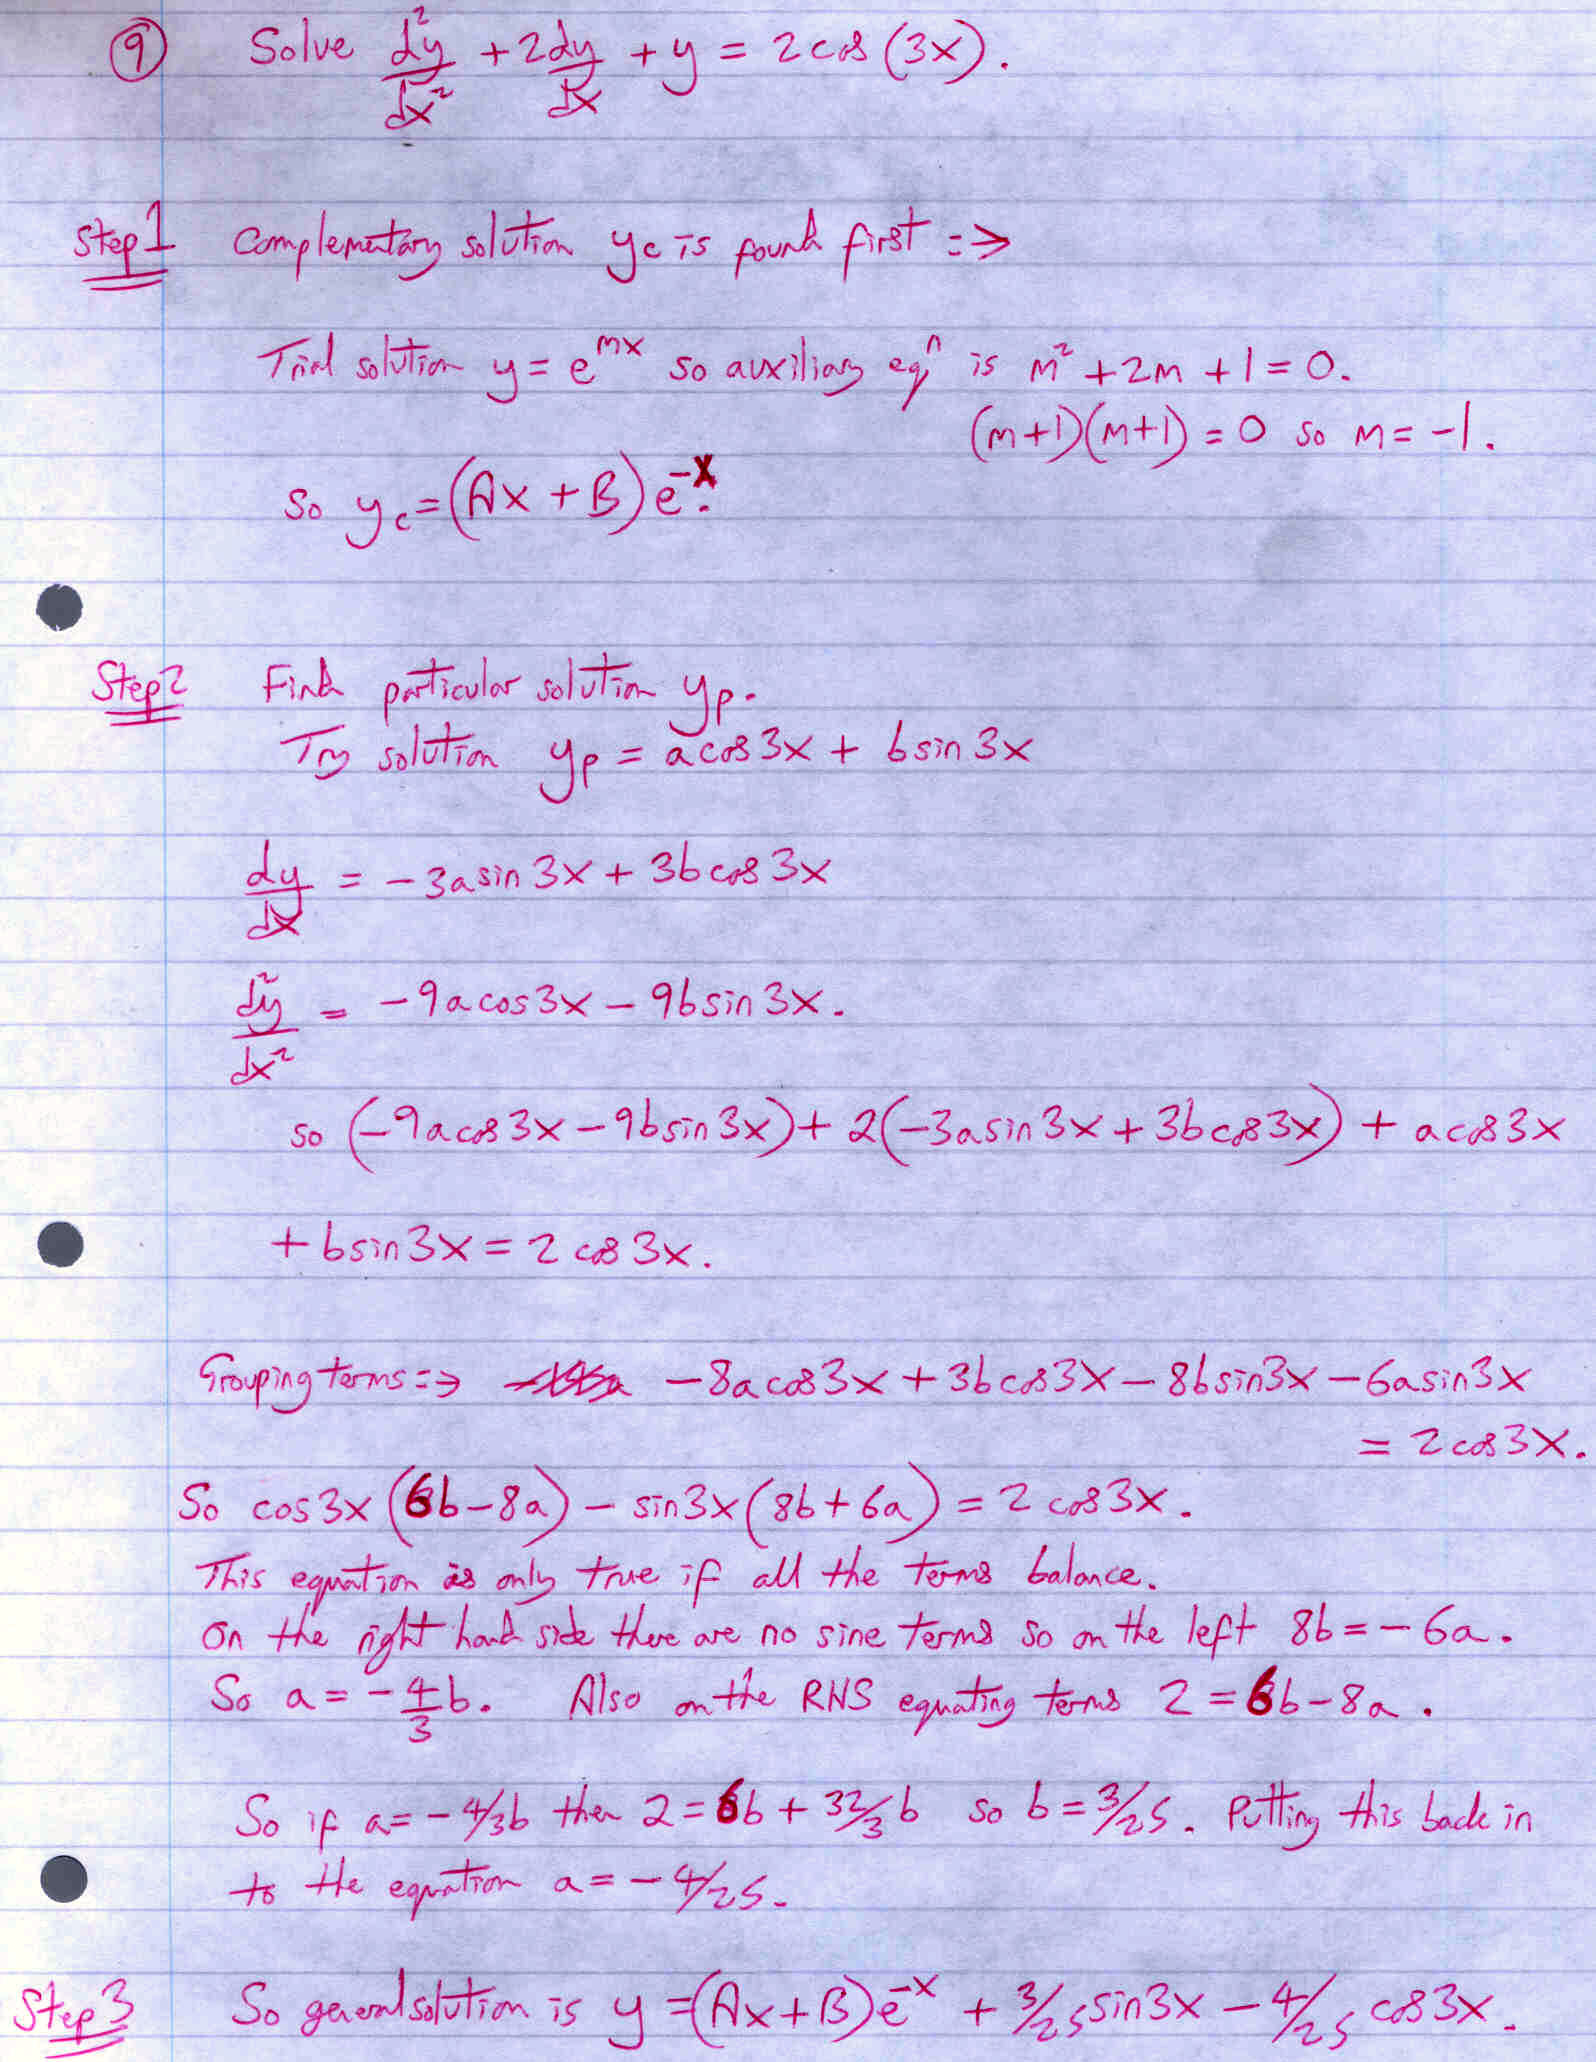 ⑨ Solve d²y/dx² + 2dy/dx + y = 2cos(3x).
Step 1 Complementary solution yc is found first =>
Trial solution y = e^mx so auxiliary eqⁿ is m² + 2m + 1 = 0.
(m+1)(m+1) = 0 so m = -1.
so yc = (Ax + B)e^-x.
Step 2 Find particular solution yp.
Try solution yp = acos3x + bsin3x
dy/dx = -3asin3x + 3bcos3x
d²y/dx² = -9acos3x - 9bsin3x.
so (-9acos3x - 9bsin3x) + 2(-3asin3x + 3bcos3x) + acos3x
+ bsin3x = 2cos3x.
Grouping terms => -8acos3x + 3bcos3x - 8bsin3x - 6asin3x
= 2cos3x.
So cos3x(6b - 8a) - sin3x(8b + 6a) = 2cos3x.
This equation is only true if all the terms balance.
On the right hand side there are no sine terms so on the left 8b = -6a.
So a = -4/3b. Also on the RHS equating terms 2 = 6b - 8a.
So if a = -4/3b then 2 = 6b + 32/3b so b = 3/25. Putting this back in
to the equation a = -4/25.
Step 3 So general solution is y = (Ax + B)e^-x + 3/25 sin3x - 4/25 cos3x.